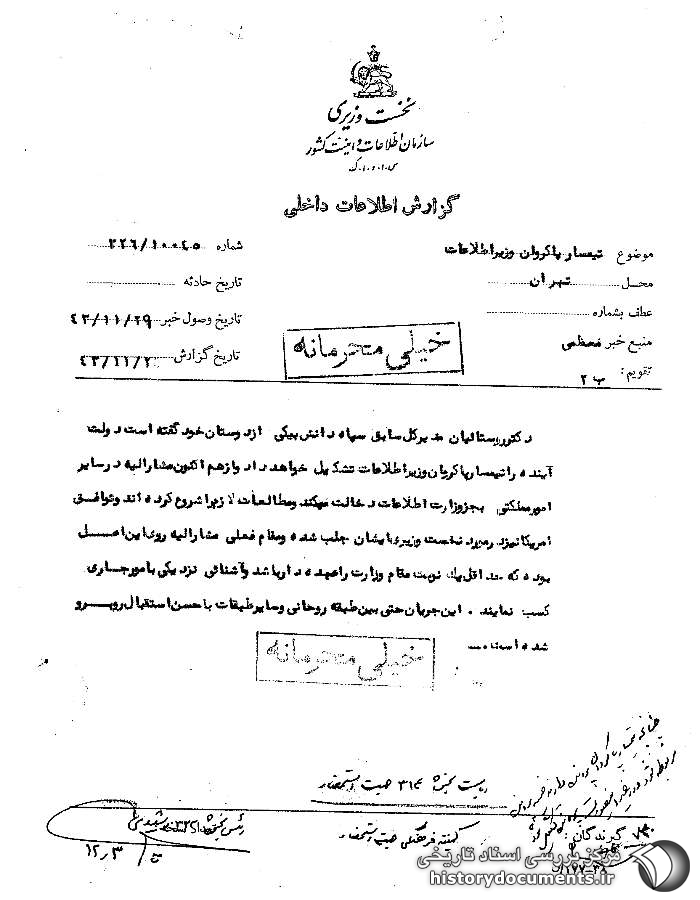 نخست وزیری
سازمان اطلاعات و امنیت کشور
س.ا.و.ا.ک
گزارش اطلاعات داخلی
موضوع تیمسار پاکروان وزیر اطلاعات
شماره ۳۲۶/۱۰۰۴۵
محل تهران
تاریخ حادثه
عطف بشماره
تاریخ وصول خبر ۴۳/۱۱/۲۹
منبع خبر معظمی
تاریخ گزارش
تقویم: ب ۲
خیلی محرمانه
دکتر روستائیان مدیرکل سابق سپاه دانش بیکی از دوستان خود گفته است دولت
آینده را تیمسار پاکروان وزیر اطلاعات تشکیل خواهد داد و از هم اکنون مشارالیه در سایر
امور مملکتی بجز وزارت اطلاعات دخالت میکند و مطالعات لازم را شروع کرده اند و توافق
امریکا نیز در مورد نخست وزیری ایشان جلب شده و مقام فعلی مشارالیه روی این اصل
بوده که حداقل یک نوبت مقام وزارت را عهده دار باشد و آشنائی نزدیکی با مور جاری
کسب نمایند . این جریان حتی بین طبقه روحانی و سایر طبقات با حسن استقبال روبرو
شده است
خیلی محرمانه
گیرندگان:
مرکز بررسی اسناد تاریخی
historydocuments.ir